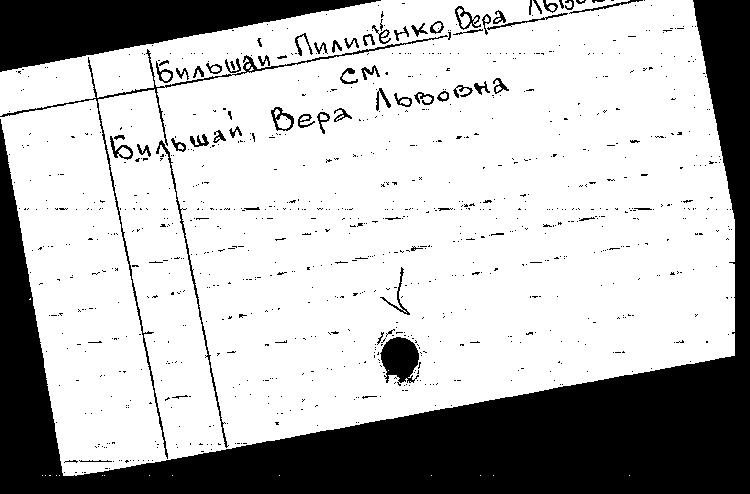 Бильшай-Пилипенко, Вера
см.
Бильшай, Вера Львовна